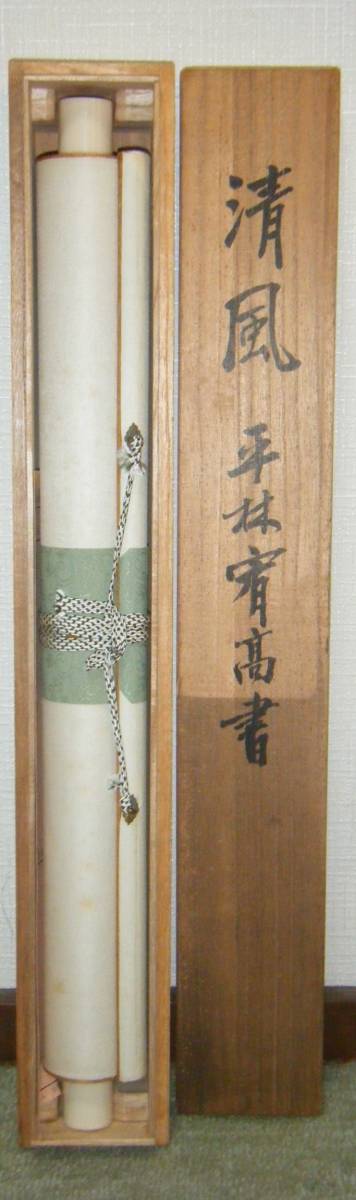 清風 平林宥高書